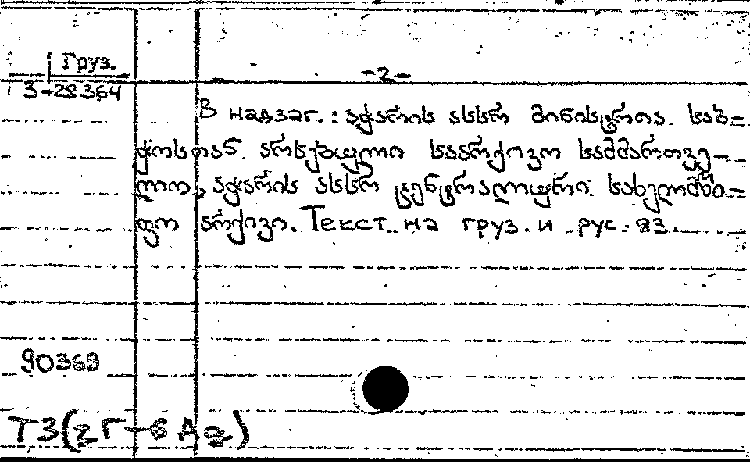 Груз.
Т 3-28364
-2-
В надзаг.: აჭარის ასსრ მინისტრთა. საბ=
ჭოსთან. არსებული საარქივო სამმართვე-
ლო, აჭარის ასსრ ცენტრალური. სახელმწი=
ფო არქივი. Текст. на груз. и рус. яз.
90369
Т3(2Г-6АД)